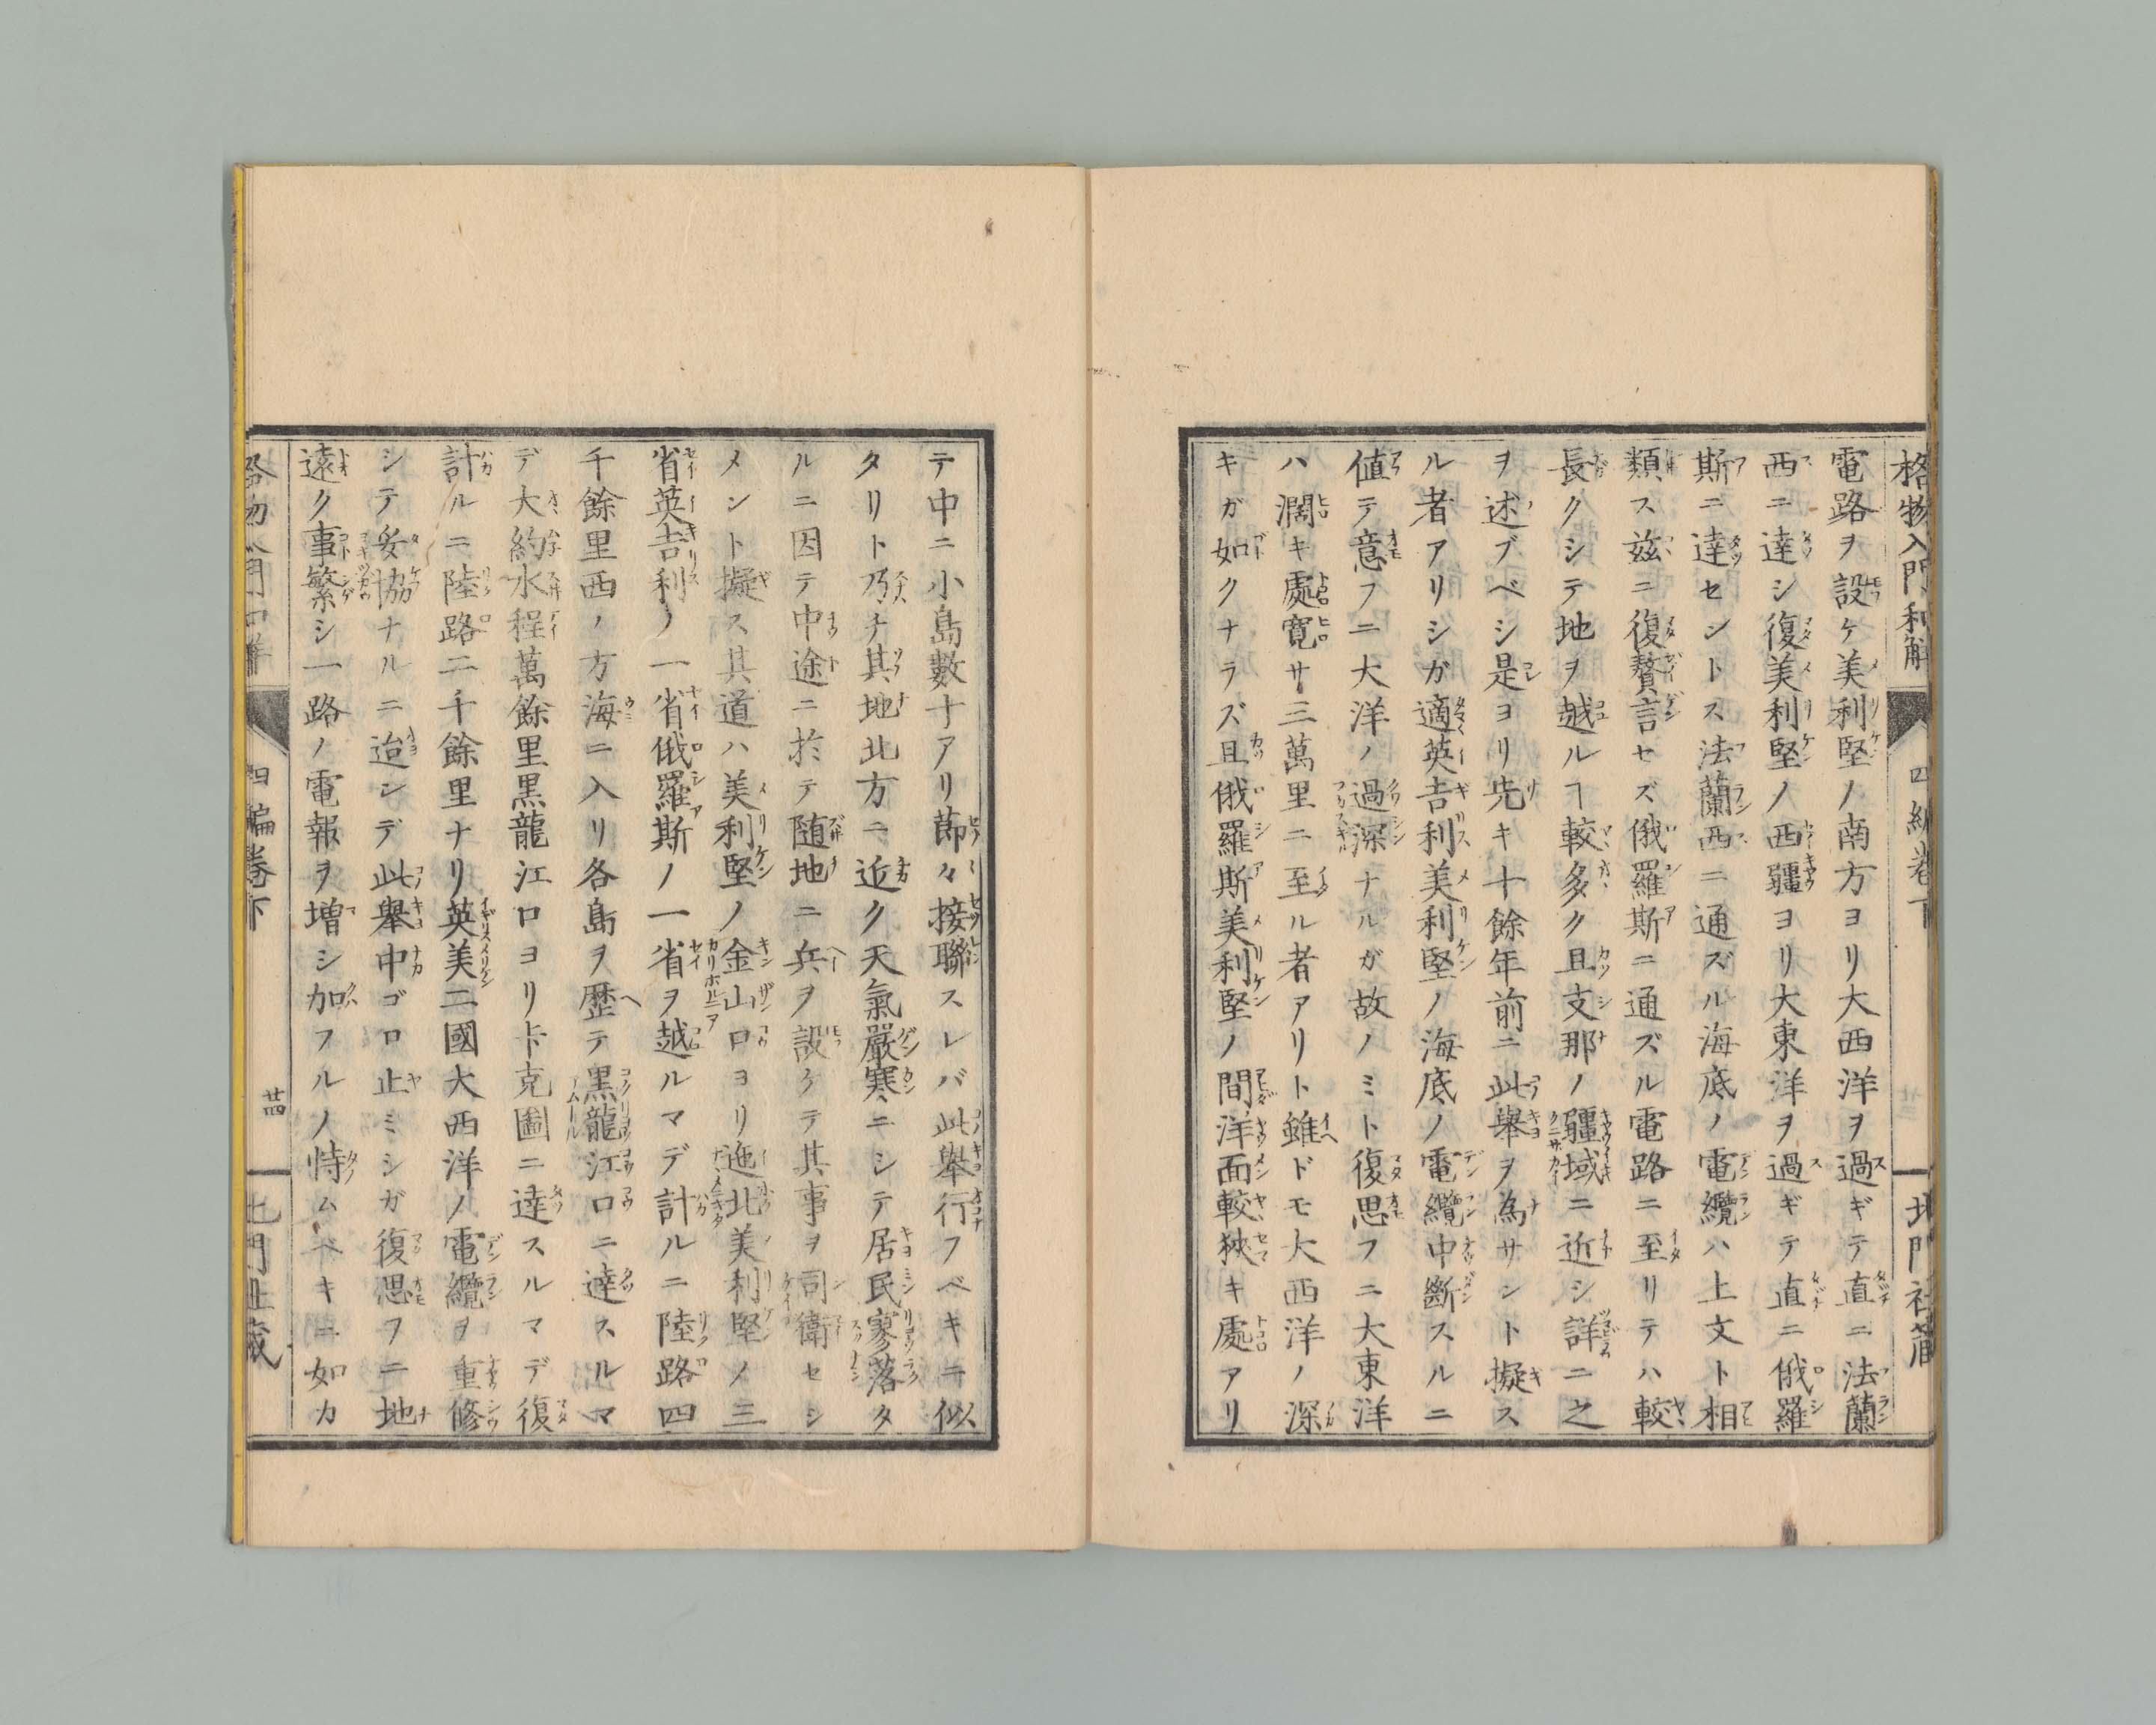 格物入門和解 四編卷下 北門社藏
電路ヲ設ケ美利堅ノ南方ヨリ大西洋ヲ過ギテ直ニ法蘭
西ニ達シ復美利堅ノ西疆ヨリ大東洋ヲ過ギテ直ニ俄羅
斯ニ達セントス法蘭西ニ通ズル海底ノ電纜ハ上文ト相
類ス兹ニ復贅言セズ俄羅斯ニ通ズル電路ニ至リテハ較
長クシテ地ヲ越ルヿ較多ク且支那ノ疆域ニ近シ詳ニ之
ヲ述ブベシ是ヨリ先キ十餘年前ニ此舉ヲ為サント擬ス
ル者アリシガ適英吉利美利堅ノ海底ノ電纜中斷スルニ
値テ意フニ大洋ノ過深ナルガ故ノミト復思フニ大東洋
ハ濶キ處寛サ三萬里ニ至ル者アリト雖ドモ大西洋ノ深
キガ如クナラズ且俄羅斯美利堅ノ間洋面較狹キ處アリ
テ中ニ小島數十アリ節々接聯スレバ此舉行フベキニ似
タリト乃チ其地北方ニ近ク天氣嚴寒ニシテ居民寥落タ
ルニ因テ中途ニ於テ随地ニ兵ヲ設ケテ其事ヲ司衛セシ
メント擬ス其道ハ美利堅ノ金山口ヨリ迤北美利堅ノ三
省英吉利ノ一省俄羅斯ノ一省ヲ越ルマデ計ルニ陸路四
千餘里西ノ方海ニ入リ各島ヲ歴テ黒龍江口ニ達スルマ
デ大約水程萬餘里黒龍江口ヨリ卡克圖ニ達スルマデ復
計ルニ陸路二千餘里ナリ英美二國大西洋ノ電纜ヲ重修
シテ妥協ナルニ迨ンデ此舉中ゴロ止ミシガ復思フニ地
遠ク事繁シ一路ノ電報ヲ増シ加フルノ恃ムベキニ如カ
格物入門和解 四編卷下 廿四 北門社藏